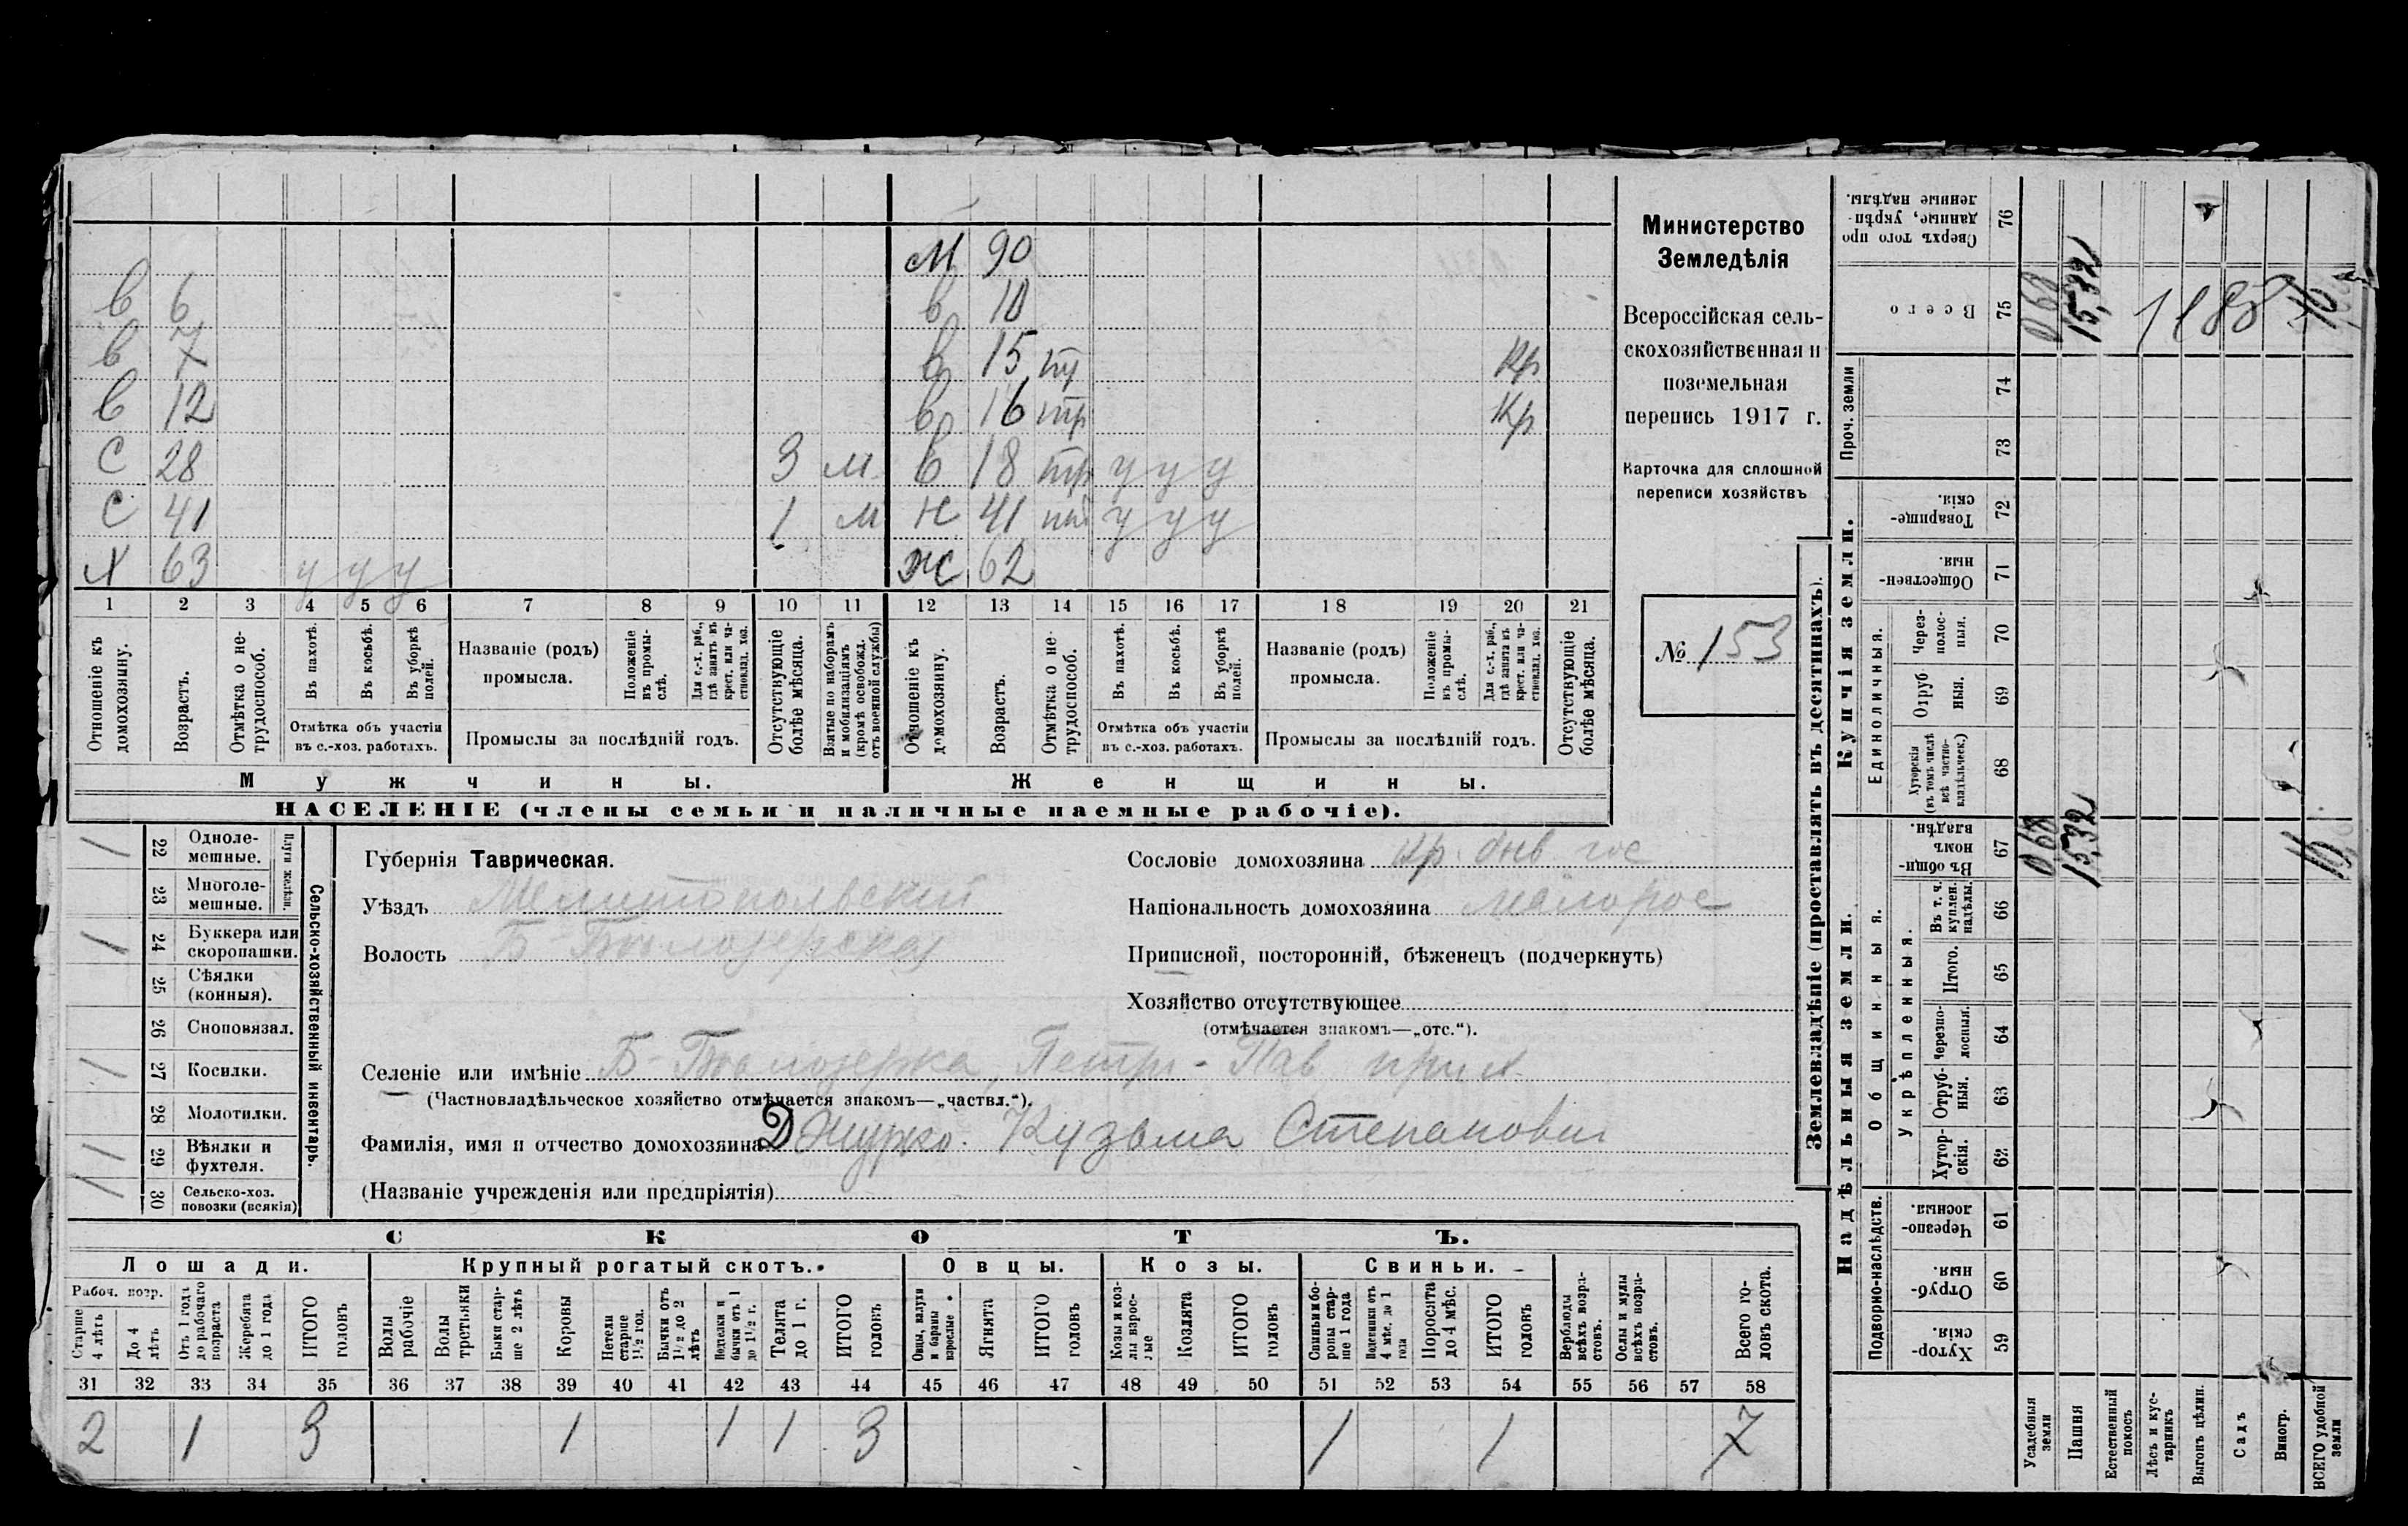 М 90
в 6 в 10
в 7 в 15 тр Кр
в 12 в 16 тр Кр
С 28 3 м в 18 тр у у у
С 41 1 м Н 41 у у у
Х 63 у у у Ж 62
1 2 3 4 5 6 7 8 9 10 11 12 13 14 15 16 17 18 19 20 21
Отношеніе къ домохозяину.
Возрастъ.
Отмѣтка о не-трудоспособ.
Въ пахотѣ.
Въ косьбѣ.
Въ уборкѣ полей.
Отмѣтка объ участіи въ с.-хоз. работахъ.
Названіе (родъ) промысла.
Положеніе въ промы-слѣ.
Для с.-х. раб., гдѣ занятъ въ крест. или ча-стновлад. хоз.
Промыслы за послѣдній годъ.
Отсутствующіе болѣе мѣсяца.
Взятые по наборамъ и мобилизаціямъ (кромѣ освобожд. отъ военной службы)
Отношеніе къ домохозяину.
Возрастъ.
Отмѣтка о не-трудоспособ.
Въ пахотѣ.
Въ косьбѣ.
Въ уборкѣ полей.
Отмѣтка объ участіи въ с.-хоз. работахъ.
Названіе (родъ) промысла.
Положеніе въ промы-слѣ.
Для с.-х. раб., гдѣ занята въ крест. или ча-стновлад. хоз.
Промыслы за послѣдній годъ.
Отсутствующіе болѣе мѣсяца.
Мужчины. Женщины.
НАСЕЛЕНІЕ (члены семьи и наличные наемные рабочіе).
Министерство
Земледѣлія
Всероссійская сель-
скохозяйственная и
поземельная
перепись 1917 г.
Карточка для сплошной
переписи хозяйствъ
№ 153
1 22 Одноле-мешные.
23 Многоле-мешные.
Плуги желѣзн.
1 24 Буккера или скоропашки.
25 Сѣялки (конныя).
26 Сноповязал.
1 27 Косилки.
28 Молотилки.
1 29 Вѣялки и фухтеля.
1 30 Сельско-хоз. повозки (всякія)
Сельско-хозяйственный инвентарь.
Губернія Таврическая.
Уѣздъ Мелитопольскій
Волость Б-Бѣлозерская
Сословіе домохозяина кр. быв гос
Національность домохозяина малорос
Приписной, посторонній, бѣженецъ (подчеркнуть)
Хозяйство отсутствующее
(отмѣчается знакомъ—„отс.“).
Селеніе или имѣніе Б-Бѣлозерка, Петро-Пав прих
(Частновладѣльческое хозяйство отмѣчается знакомъ—„частвл.“).
Фамилія, имя и отчество домохозяина Джурко. Кузьма Степанович
(Названіе учрежденія или предпріятія)
СКОТЪ.
Лошади. Крупный рогатый скотъ. Овцы. Козы. Свиньи.
Рабоч. возр.
Старше 4 лѣтъ
До 4 лѣтъ
Отъ 1 года до рабочаго возраста
Жеребята до 1 года
ИТОГО головъ
Волы рабочіе
Волы третьяки
Быки стар-ше 2 лѣтъ
Коровы
Нетели старше 1½ года.
Бычки отъ 1½ до 2 лѣтъ
Подтелки и бычки отъ 1 до 1½ г.
Телята до 1 г.
ИТОГО головъ
Овцы, валухи и бараны взрослые
Ягнята
ИТОГО головъ
Козы и коз-лы взрос-лые
Козлята
ИТОГО головъ
Свиньи и бо-ровы стар-ше 1 года
Подсвинки отъ 4 мѣс. до 1 года
Поросята до 4 мѣс.
ИТОГО головъ
Верблюды всѣхъ возра-стовъ.
Ослы и мулы всѣхъ возра-стовъ.
Всего го-ловъ скота.
31 32 33 34 35 36 37 38 39 40 41 42 43 44 45 46 47 48 49 50 51 52 53 54 55 56 57 58
2 1 3 1 1 1 3 1 1 7
Землевладѣніе (проставлять въ десятинахъ).
Надѣльныя земли. Купчія земли. Проч. земли
Подворно-наслѣдств. Общинныя. Укрѣпленныя. Единоличныя.
Сверхъ того про данные, укрѣп-ленные надѣлы. 76
Всего 75 0,68 15,32 1188
74
73
Товарище-скія. 72
Обществен-ныя 71
Через-полос-ныя. 70
Отруб ныя. 69
Хуторскія (въ томъ числѣ всѣ частно-владѣльческ.) 68
Въ общи-номъ владѣн. 67 0,68 15,32 16
Въ т. ч. куплен. надѣлы. 66
Итого. 65
Черезпо-лосныя. 64
Отруб-ныя. 63
Хутор-скія. 62
Черезпо-лосныя. 61
Отруб-ныя. 60
Хутор-скія. 59
Усадебныя земли
Пашня
Естественный покосъ
Лѣсъ и кус-тарникъ
Выгонъ цѣлин.
Садъ
Виногр.
ВСЕГО удобной земли